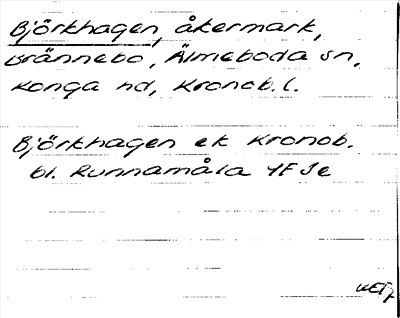 Björkhagen, åkermark,
Brännebo, Älmeboda sn,
Konga hd, Kronob. l.
Björkhagen ek Kronob.
bl. Runnamåla 4F Se